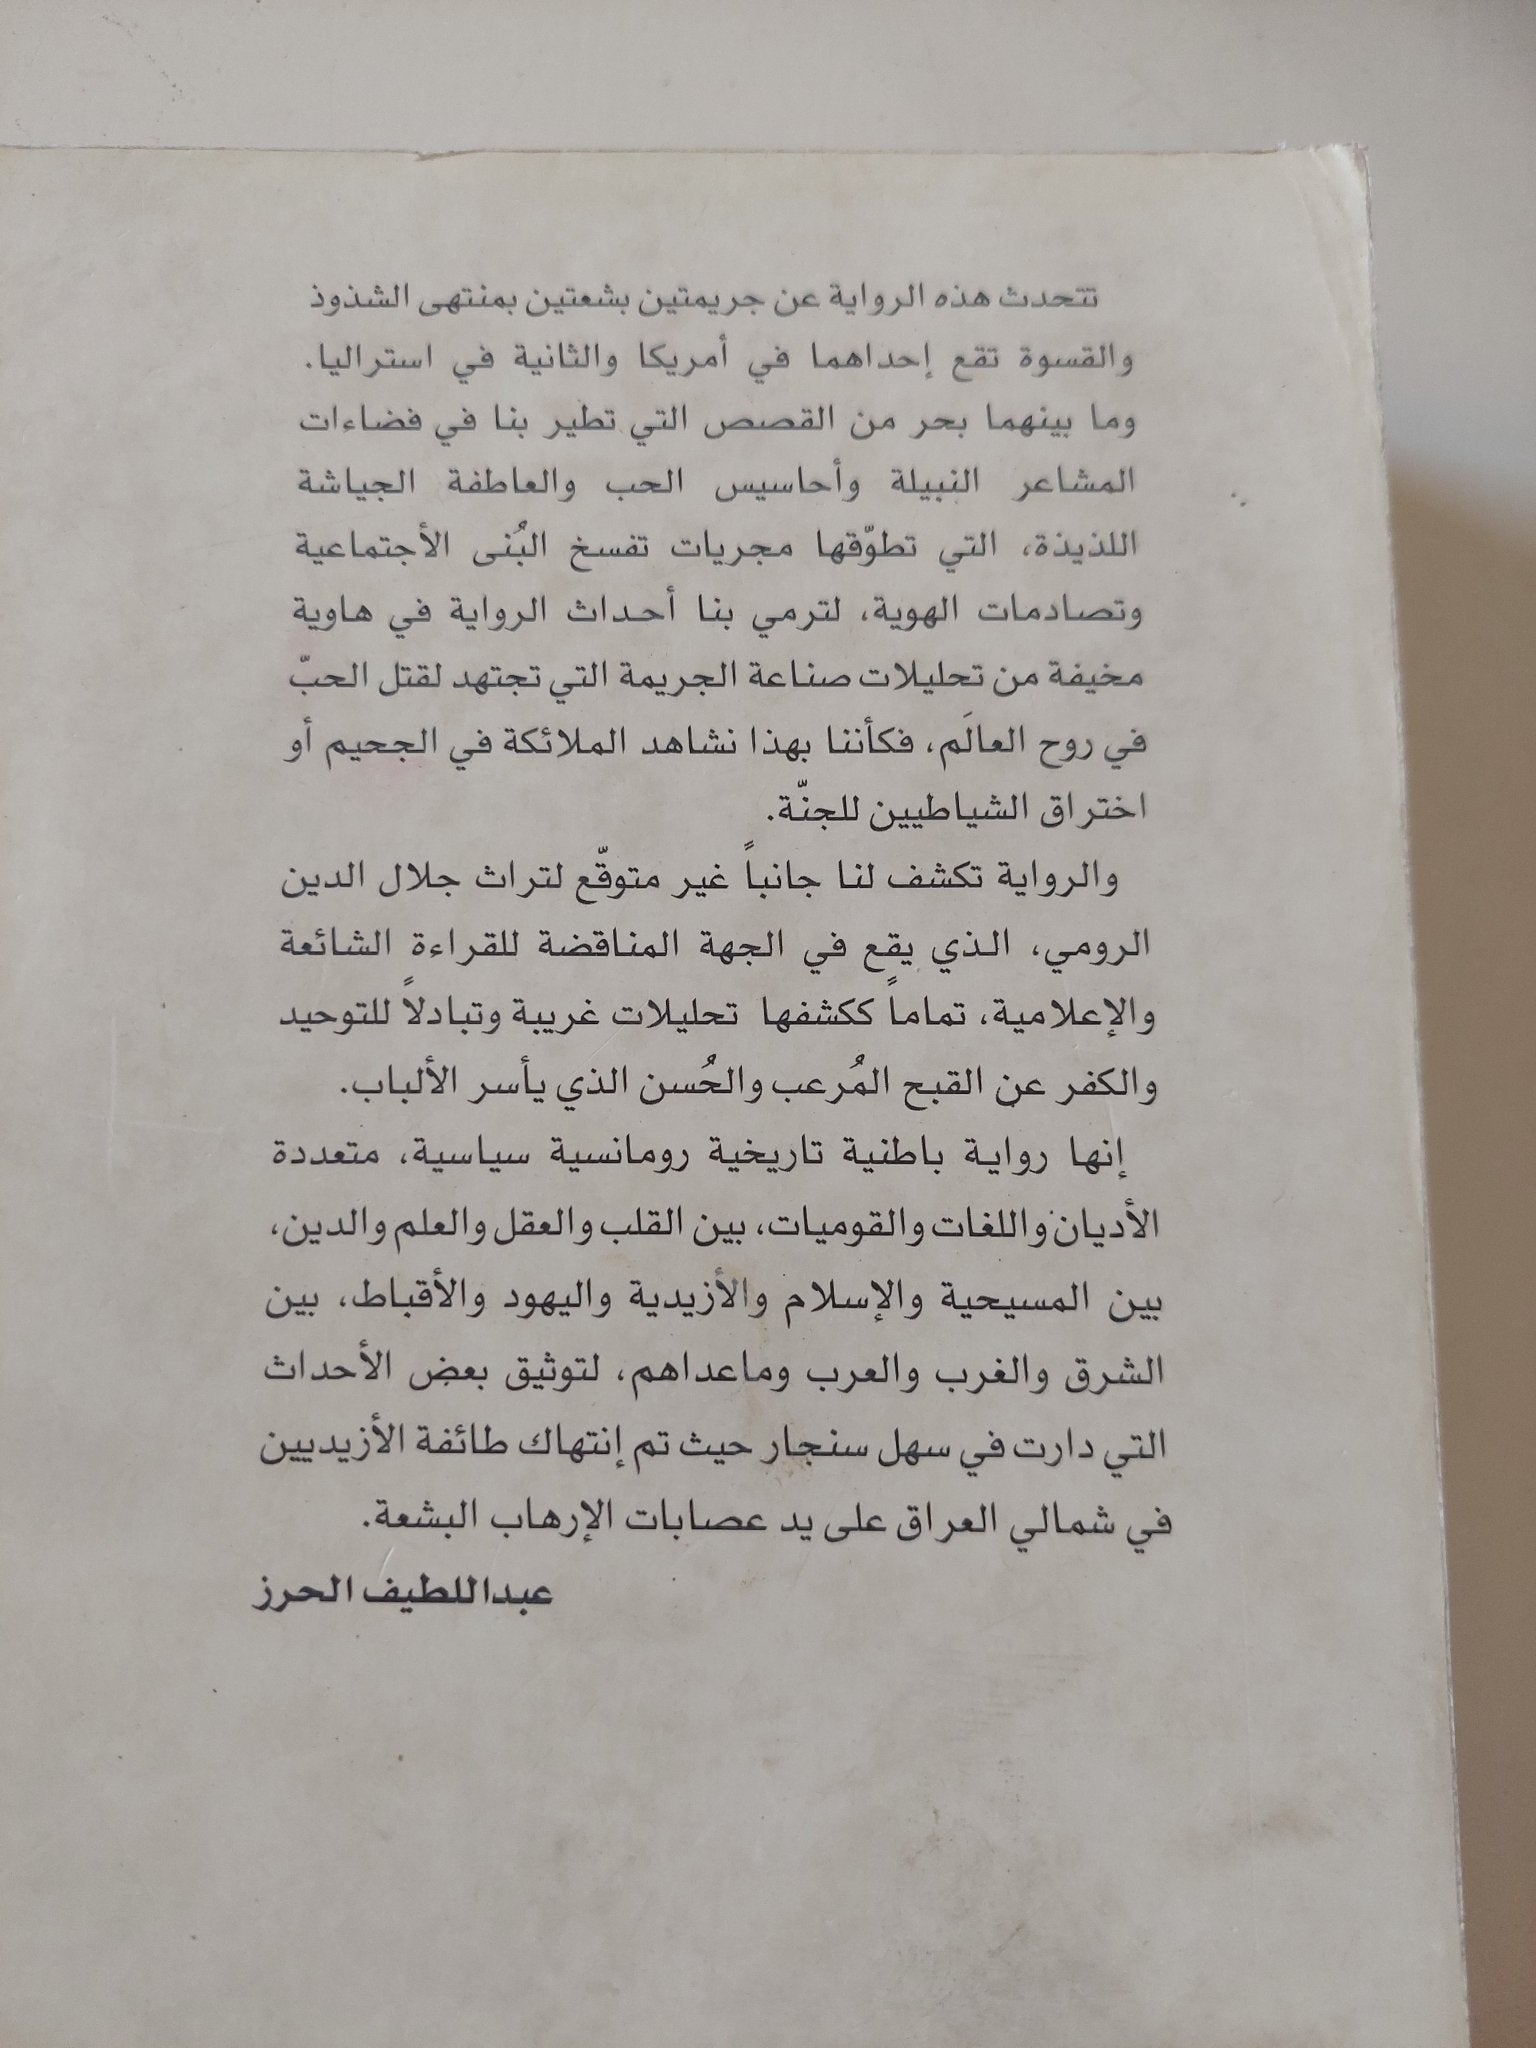 تتحدث هذه الرواية عن جريمتين بشعتين بمنتهى الشذوذ
والقسوة تقع إحداهما في أمريكا والثانية في استراليا.
وما بينهما بحر من القصص التي تطير بنا في فضاءات
المشاعر النبيلة وأحاسيس الحب والعاطفة الجياشة
اللذيذة، التي تطوّقها مجريات تفسخ البُنى الأجتماعية
وتصادمات الهوية، لترمي بنا أحداث الرواية في هاوية
مخيفة من تحليلات صناعة الجريمة التي تجتهد لقتل الحبّ
في روح العالَم، فكأننا بهذا نشاهد الملائكة في الجحيم أو
اختراق الشياطيين للجنّة.
والرواية تكشف لنا جانباً غير متوقّع لتراث جلال الدين
الرومي، الذي يقع في الجهة المناقضة للقراءة الشائعة
والإعلامية، تماماً ككشفها تحليلات غريبة وتبادلاً للتوحيد
والكفر عن القبح المُرعب والحُسن الذي يأسر الألباب.
إنها رواية باطنية تاريخية رومانسية سياسية، متعددة
الأديان واللغات والقوميات، بين القلب والعقل والعلم والدين،
بين المسيحية والإسلام والأزيدية واليهود والأقباط، بين
الشرق والغرب والعرب وماعداهم، لتوثيق بعض الأحداث
التي دارت في سهل سنجار حيث تم إنتهاك طائفة الأزيديين
في شمالي العراق على يد عصابات الإرهاب البشعة.
عبداللطيف الحرز